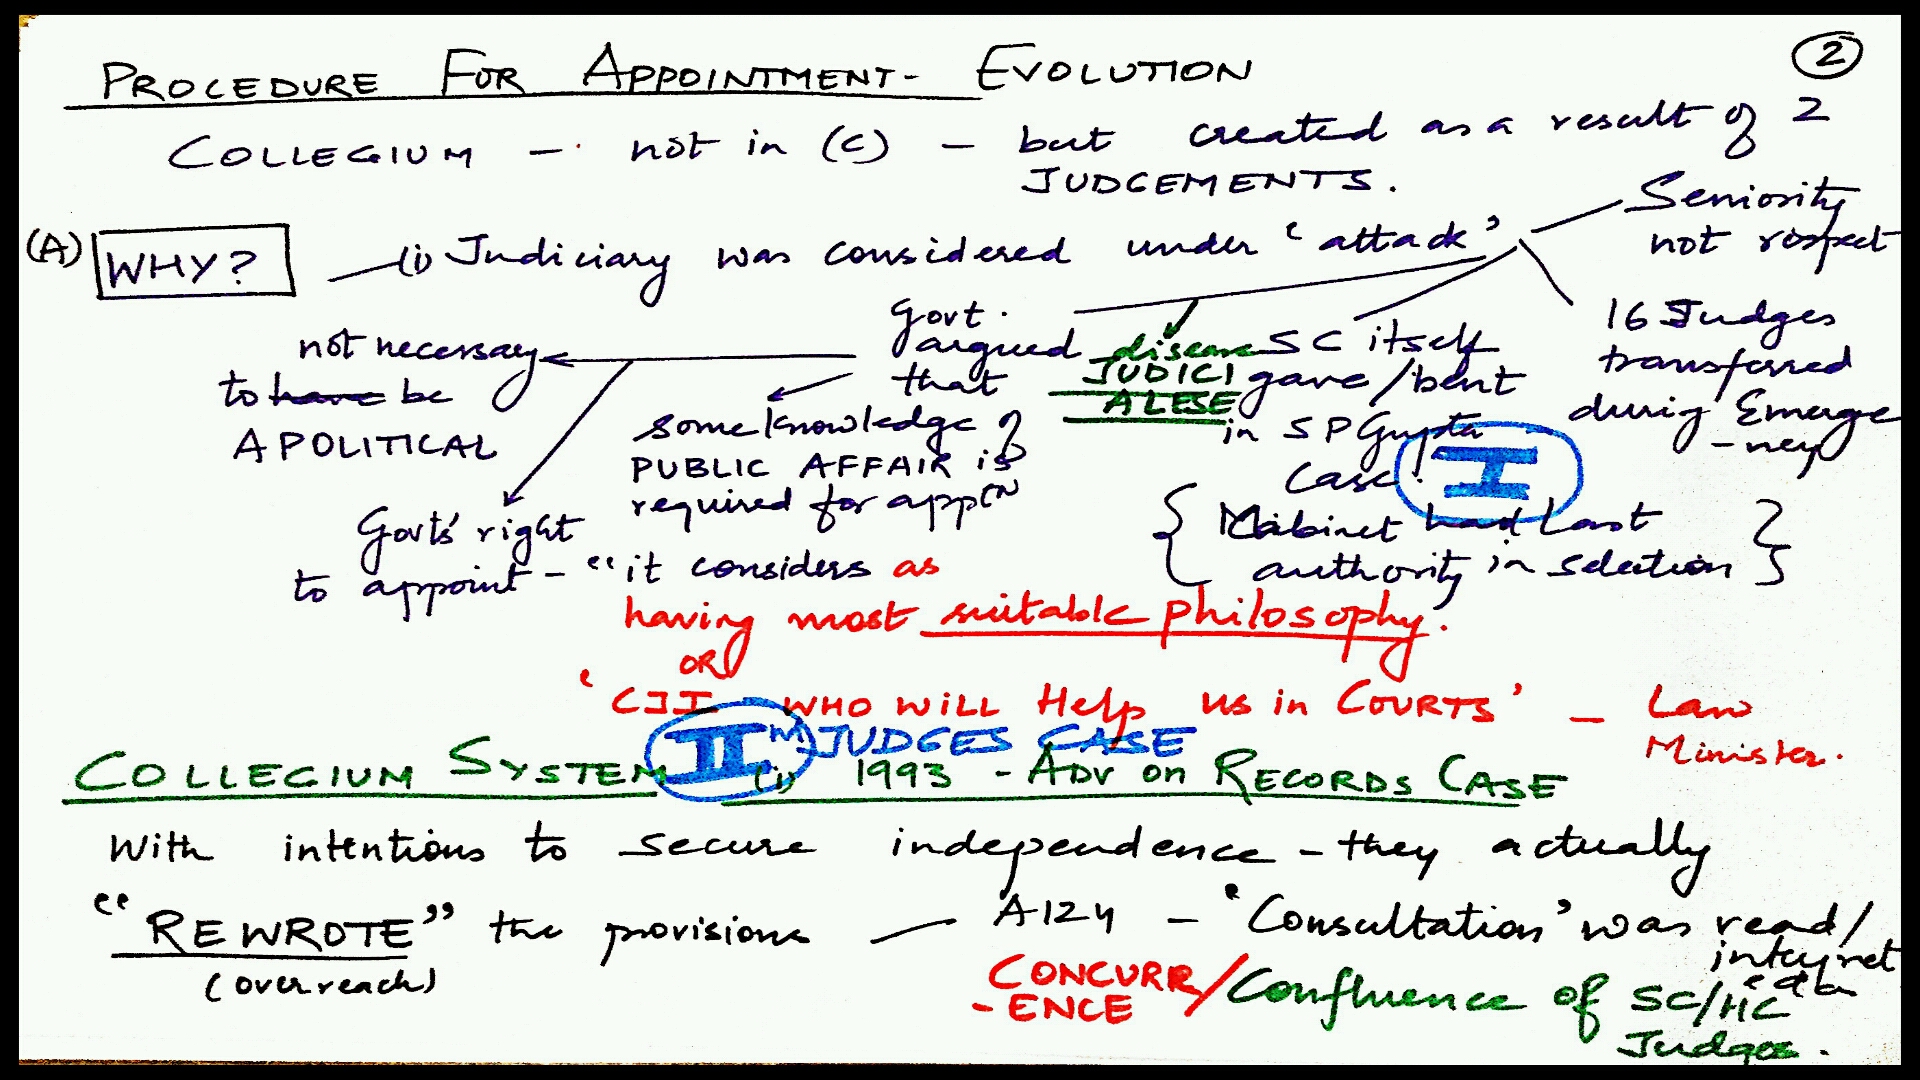 PROCEDURE FOR APPOINTMENT - EVOLUTION
2
COLLEGIUM - not in (C) - but created as a result of 2
JUDGEMENTS.
(A) WHY? (i) Judiciary was considered under 'attack'
Seniority
not respect
16 Judges
transferred
during Emerge
-ncy
SC itself
gave/bent
in SP Gupta
Case
I
{ Cabinet had Last
authority in selection }
disease
JUDICI
ALESE
Govt.
argued
that
some knowledge of
PUBLIC AFFAIR is
required for apptn
not necessary
to have be
APOLITICAL
Govt's right
to appoint - "it considers as
having most suitable philosophy.
OR
'CJI WHO WILL Help us in COURTS' - Law
Minister.
II JUDGES CASE
COLLEGIUM SYSTEM (i) 1993 - ADV on RECORDS CASE
With intentions to secure independence - they actually
"REWROTE" the provisions - A124 - 'Consultation' was read/
interpret
ed as
(overreach)
CONCURR
-ENCE / Confluence of SC/HC
Judges.